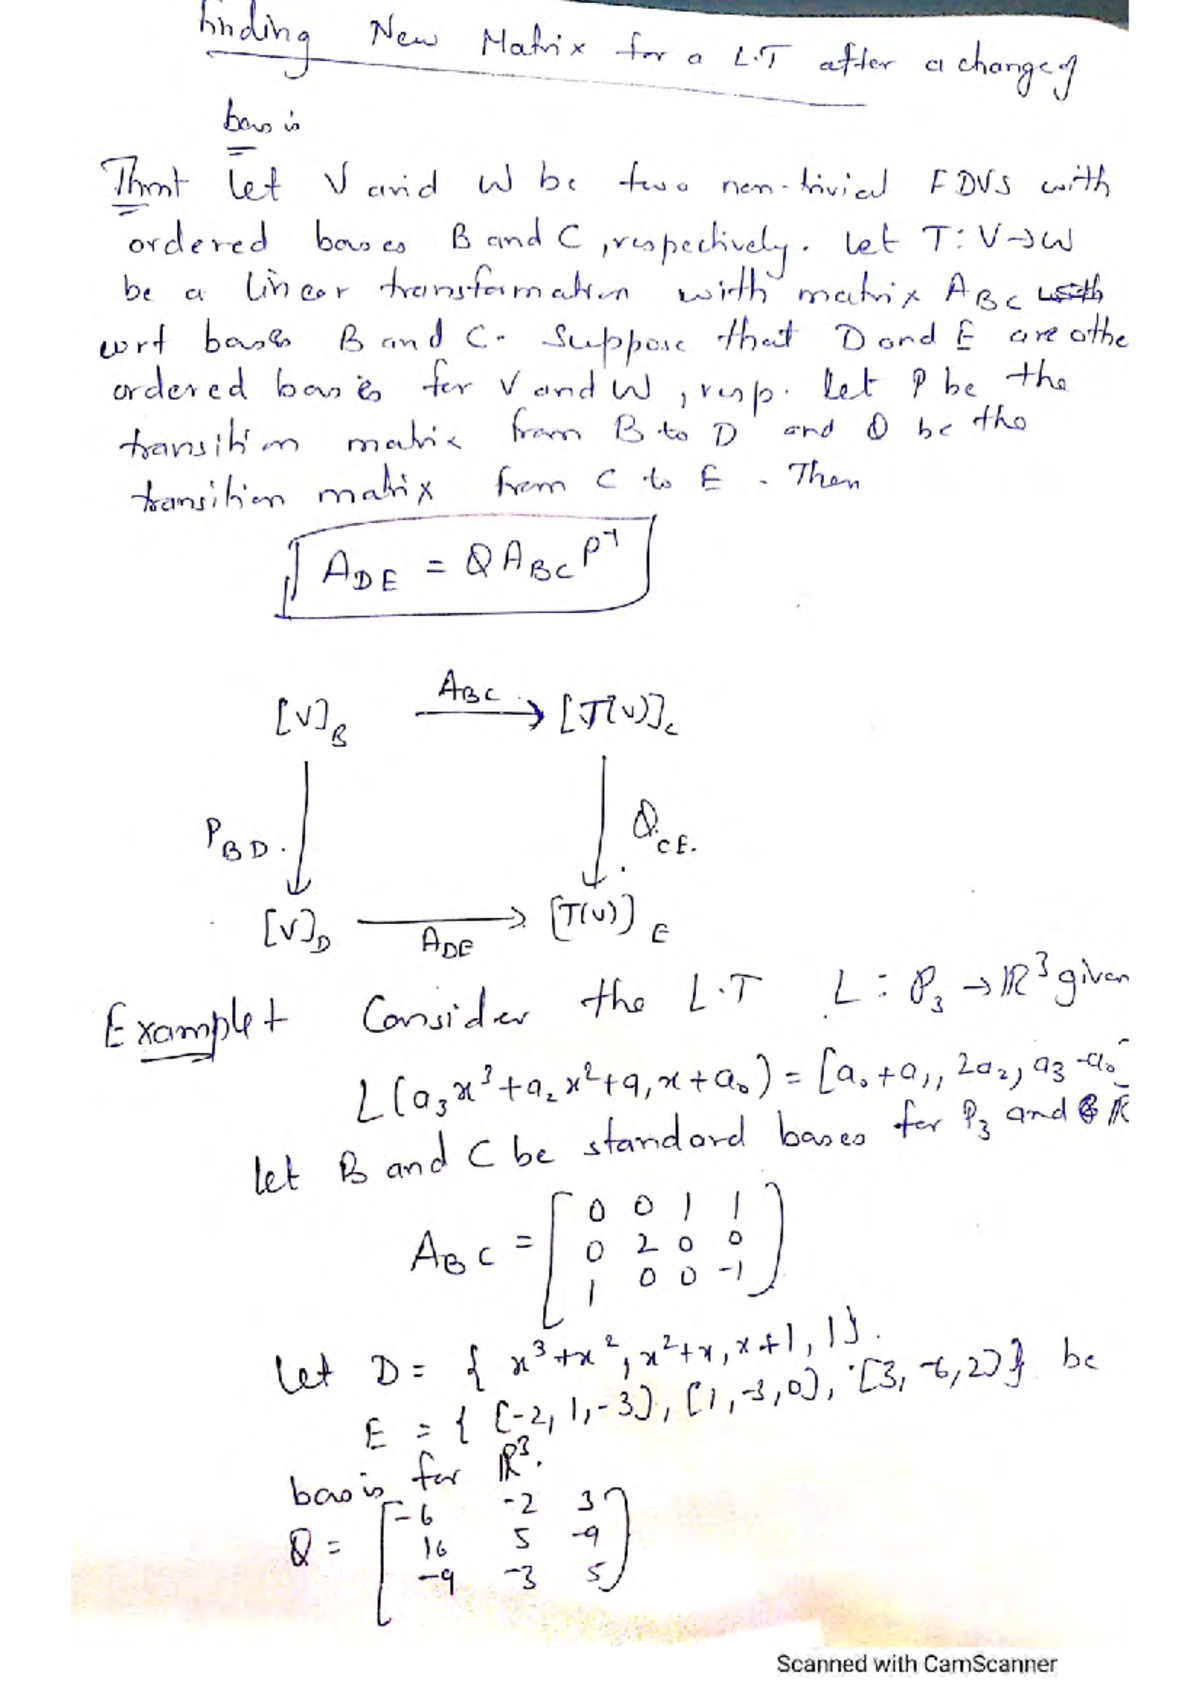 Finding New Matrix for a L.T after a change of
basis
Thm1 Let V and W be two non-trivial FDVS with
ordered bases B and C, respectively. Let T: V→W
be a linear transformation with matrix A_BC
wrt bases B and C. Suppose that D and E are othe
ordered bases for V and W, resp. Let P be the
transition matrix from B to D and Q be the
transition matrix from C to E. Then
A_DE = Q A_BC P⁻¹
[V]_B A_BC → [T(v)]_C
P_BD. Q_CE.
[V]_D → [T(v)]_E
A_DE
Example+ Consider the L.T L: P₃ → R³ given
L(a₃x³+a₂x²+a₁x+a₀) = [a₀+a₁, 2a₂, a₃-a₀]
Let B and C be standard bases for P₃ and R
A_BC = [ 0 0 1 1
0 2 0 0
1 0 0 -1 ]
Let D = { x³+x², x²+x, x+1, 1}.
E = { [-2, 1, -3], [1, -3, 0], [3, -6, 2]} be
basis for R³.
Q = [ -6 -2 3
16 5 -9
-9 -3 5 ]
Scanned with CamScanner